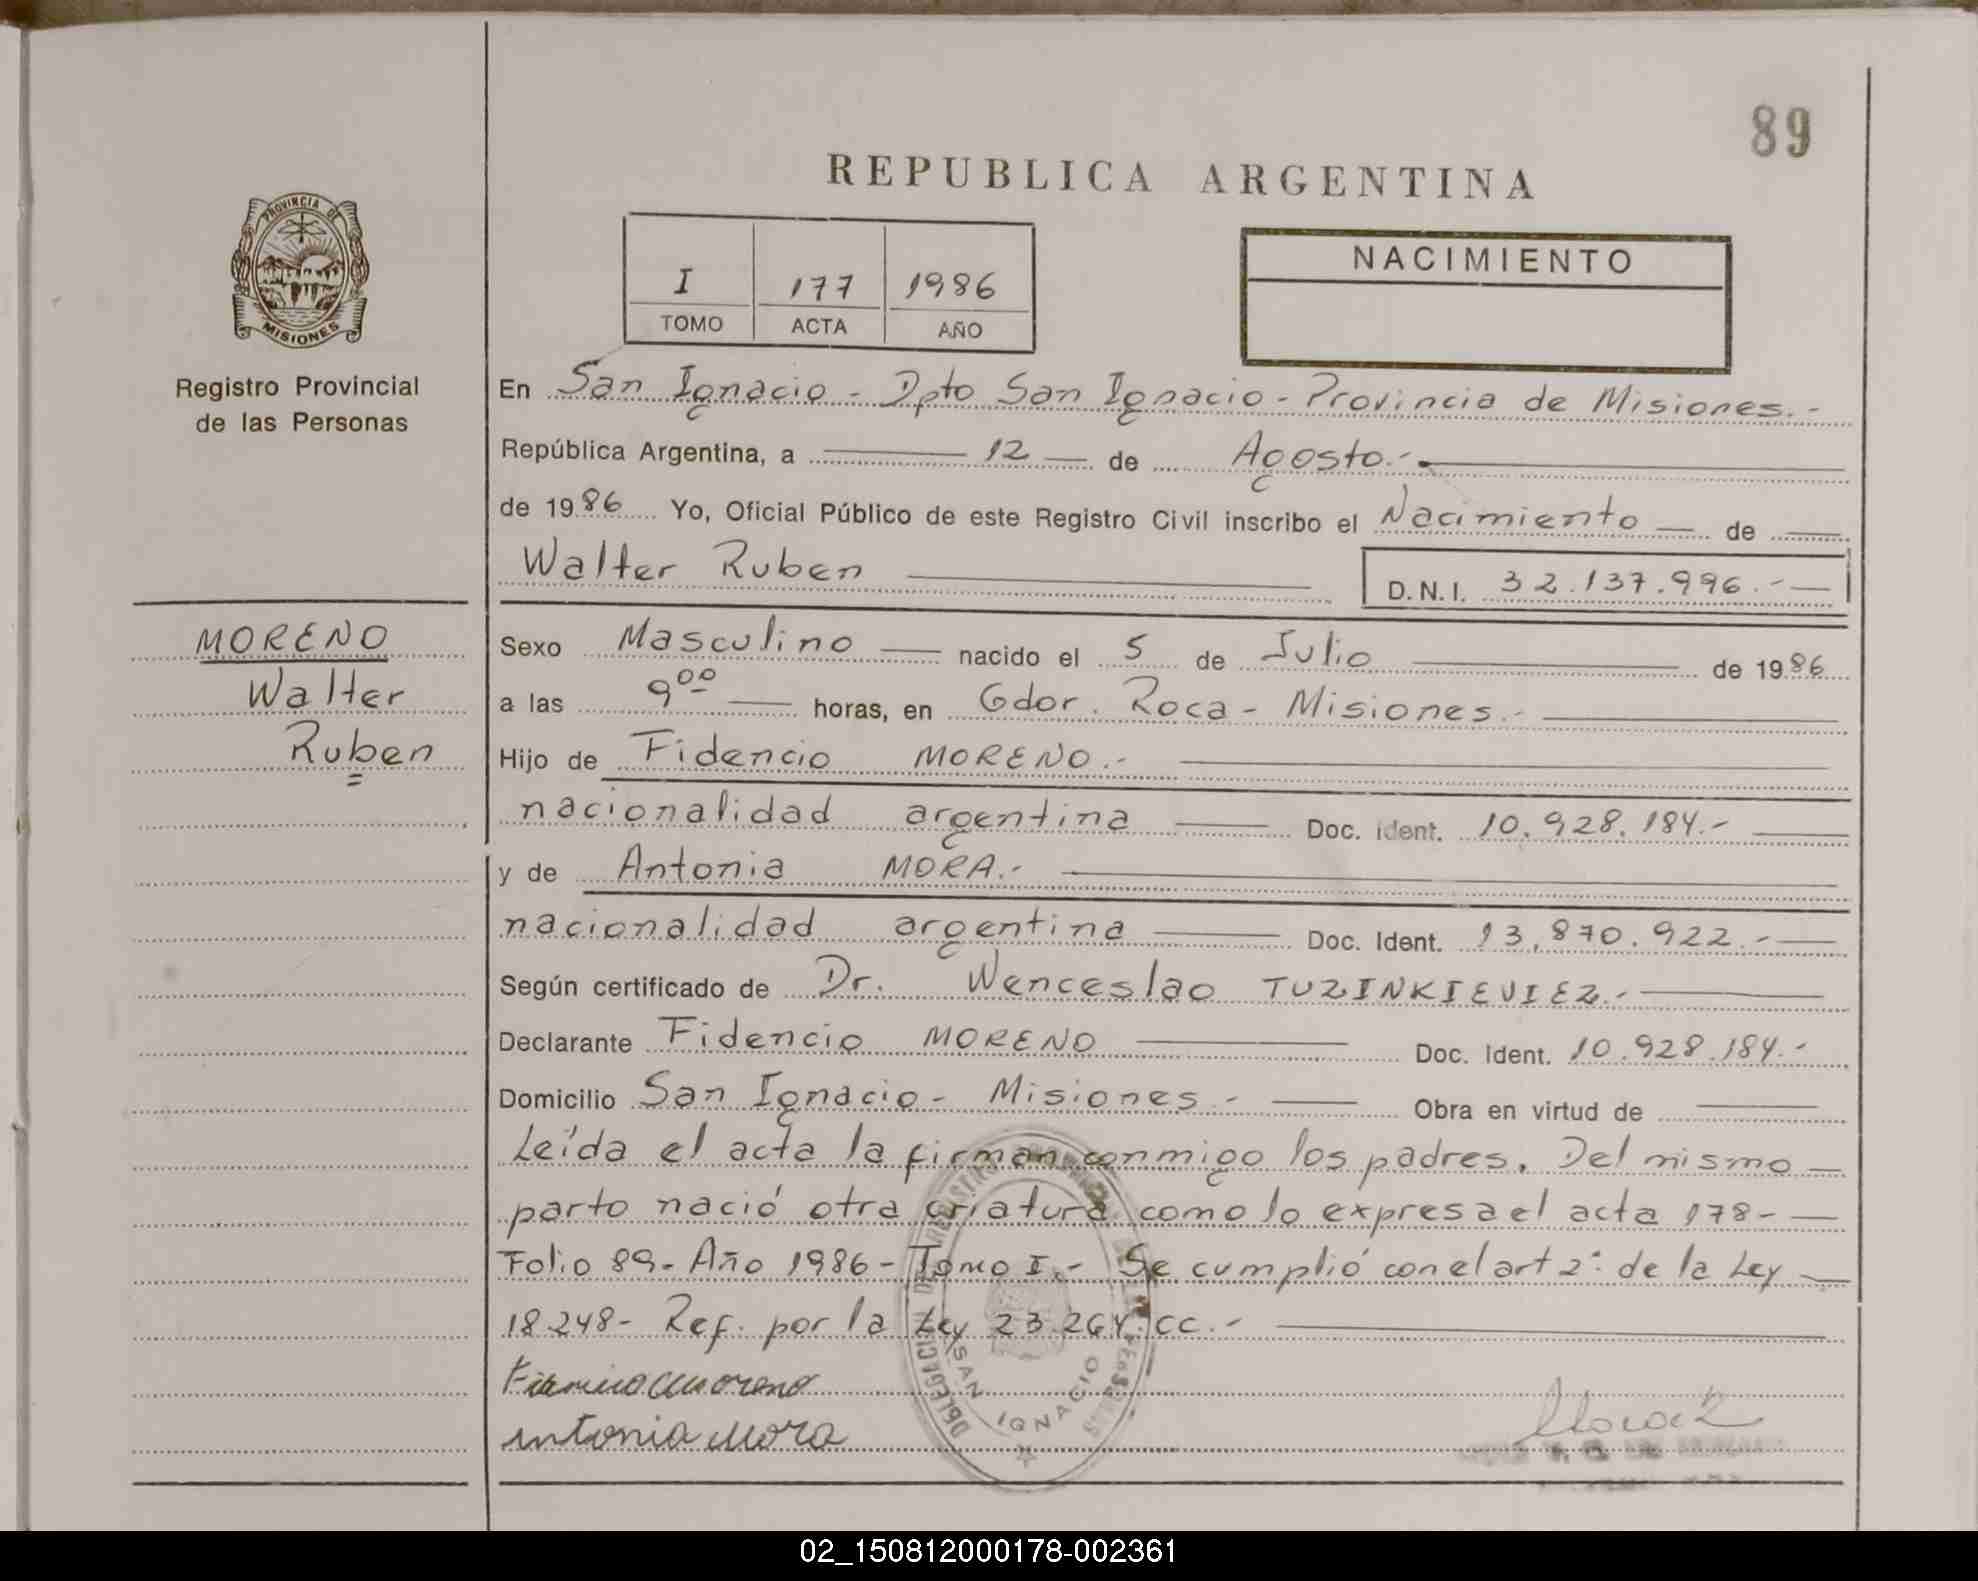 89
REPUBLICA ARGENTINA
PROVINCIA DE
MISIONES
Registro Provincial
de las Personas
I 177 1986
TOMO ACTA AÑO
NACIMIENTO
En San Ignacio - Dpto San Ignacio - Provincia de Misiones.-
República Argentina, a 12 de Agosto.-
de 1986 Yo, Oficial Público de este Registro Civil inscribo el Nacimiento de
Walter Ruben D.N.I. 32.137.996.-
MORENO
Walter
Ruben
Sexo Masculino nacido el 5 de Julio de 1986
a las 9 00 horas, en Gdor. Roca - Misiones.-
Hijo de Fidencio MORENO.-
nacionalidad argentina Doc. ident. 10.928.184.-
y de Antonia MORA.-
nacionalidad argentina Doc. Ident. 13.870.922.-
Según certificado de Dr. Wenceslao TUZINKIEVIEZ.-
Declarante Fidencio MORENO Doc. Ident. 10.928.184.-
Domicilio San Ignacio - Misiones.- Obra en virtud de
Leída el acta la firman conmigo los padres. Del mismo
parto nació otra criatura como lo expresa el acta 178-
Folio 89- Año 1986- Tomo I.- Se cumplió con el art 2º de la Ley
18.248- Ref. por la Ley 23.264.CC.-
Moreno
Antonia Mora
DELEGACION DE REGISTRO
SAN IGNACIO
02_150812000178-002361